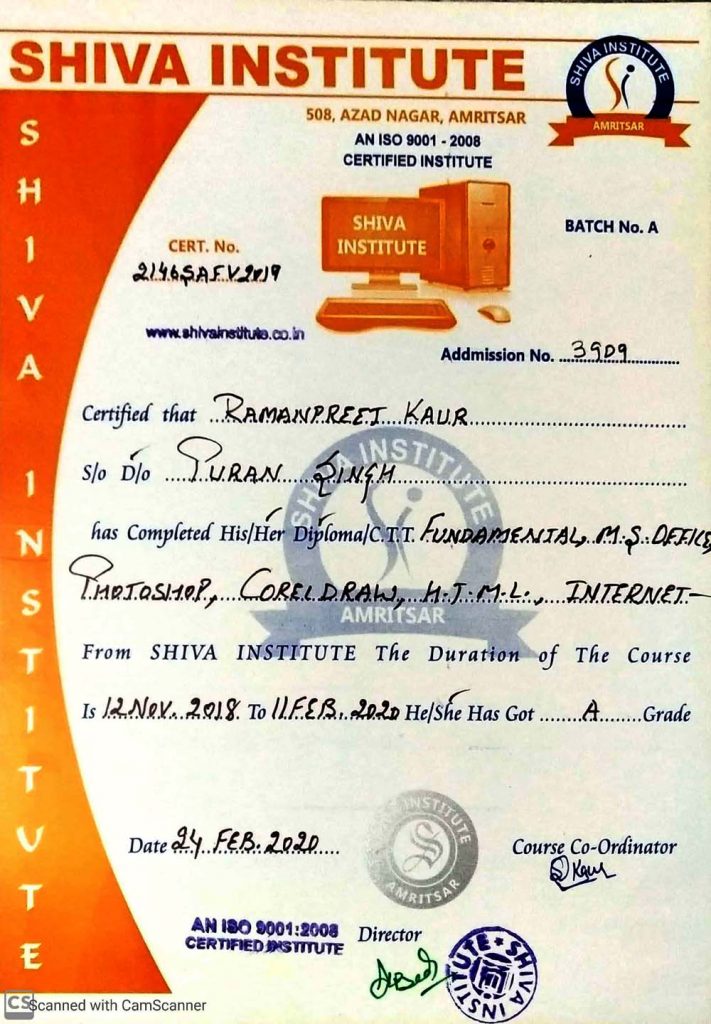 SHIVA INSTITUTE
SHIVA INSTITUTE
AMRITSAR
508, AZAD NAGAR, AMRITSAR
AN ISO 9001 - 2008
CERTIFIED INSTITUTE
SHIVA INSTITUTE
SHIVA
INSTITUTE
BATCH No. A
CERT. No.
2146SAFV2019
www.shivainstitute.co.in
Addmission No. ...3909...
Certified that RAMANPREET KAUR
S/o D/o PURAN SINGH
SHIVA INSTITUTE
has Completed His/Her Diploma/C.T.T. FUNDAMENTAL, M.S.OFFICE,
PHOTOSHOP, COREL DRAW, H.T.M.L., INTERNET-
AMRITSAR
From SHIVA INSTITUTE The Duration of The Course
Is 12 NOV. 2018 To 11 FEB. 2020 He/She Has Got ........A.......Grade
INSTITUTE
S
AMRITSAR
Date 24 FEB. 2020
Course Co-Ordinator
Kaur
AN ISO 9001:2008
CERTIFIED INSTITUTE
Director
SHIVA INSTITUTE
CS Scanned with CamScanner